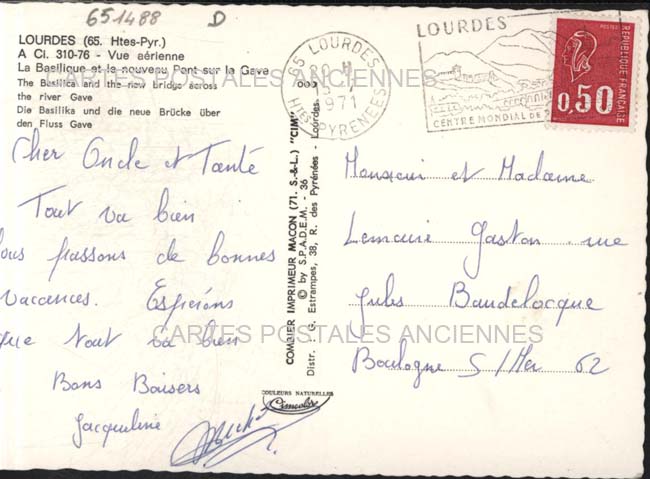 651488 D
LOURDES (65. Htes-Pyr.)
A Ci. 310-76 - Vue aérienne
La Basilique et le nouveau Pont sur la Gave
The Basilica and the new bridge across
the river Gave
Die Basilika und die neue Brücke über
den Fluss Gave
Cher Oncle et Tante
Tout va bien
ous passons de bonnes
vacances. Espérons
que tout va bien
Bons Baisers
Jacqueline
COMBIER IMPRIMEUR MACON (71. S.-&-L.) "CIM"
© by S.P.A.D.E.M. - 36
Distr. : G. Estrampes, 38, R. des Pyrénées - Lourdes.
009
COULEURS NATURELLES
Cimcolor
65 LOURDES
1971
Htes PYRENEES
LOURDES
CENTRE MONDIAL DE
POSTES
REPUBLIQUE FRANÇAISE
0,50
Monsieur et Madame
Lemaire Gaston rue
Jules Baudelocque
Boulogne S/Mer 62
CARTES POSTALES ANCIENNES
CARTES POSTALES ANCIENNES